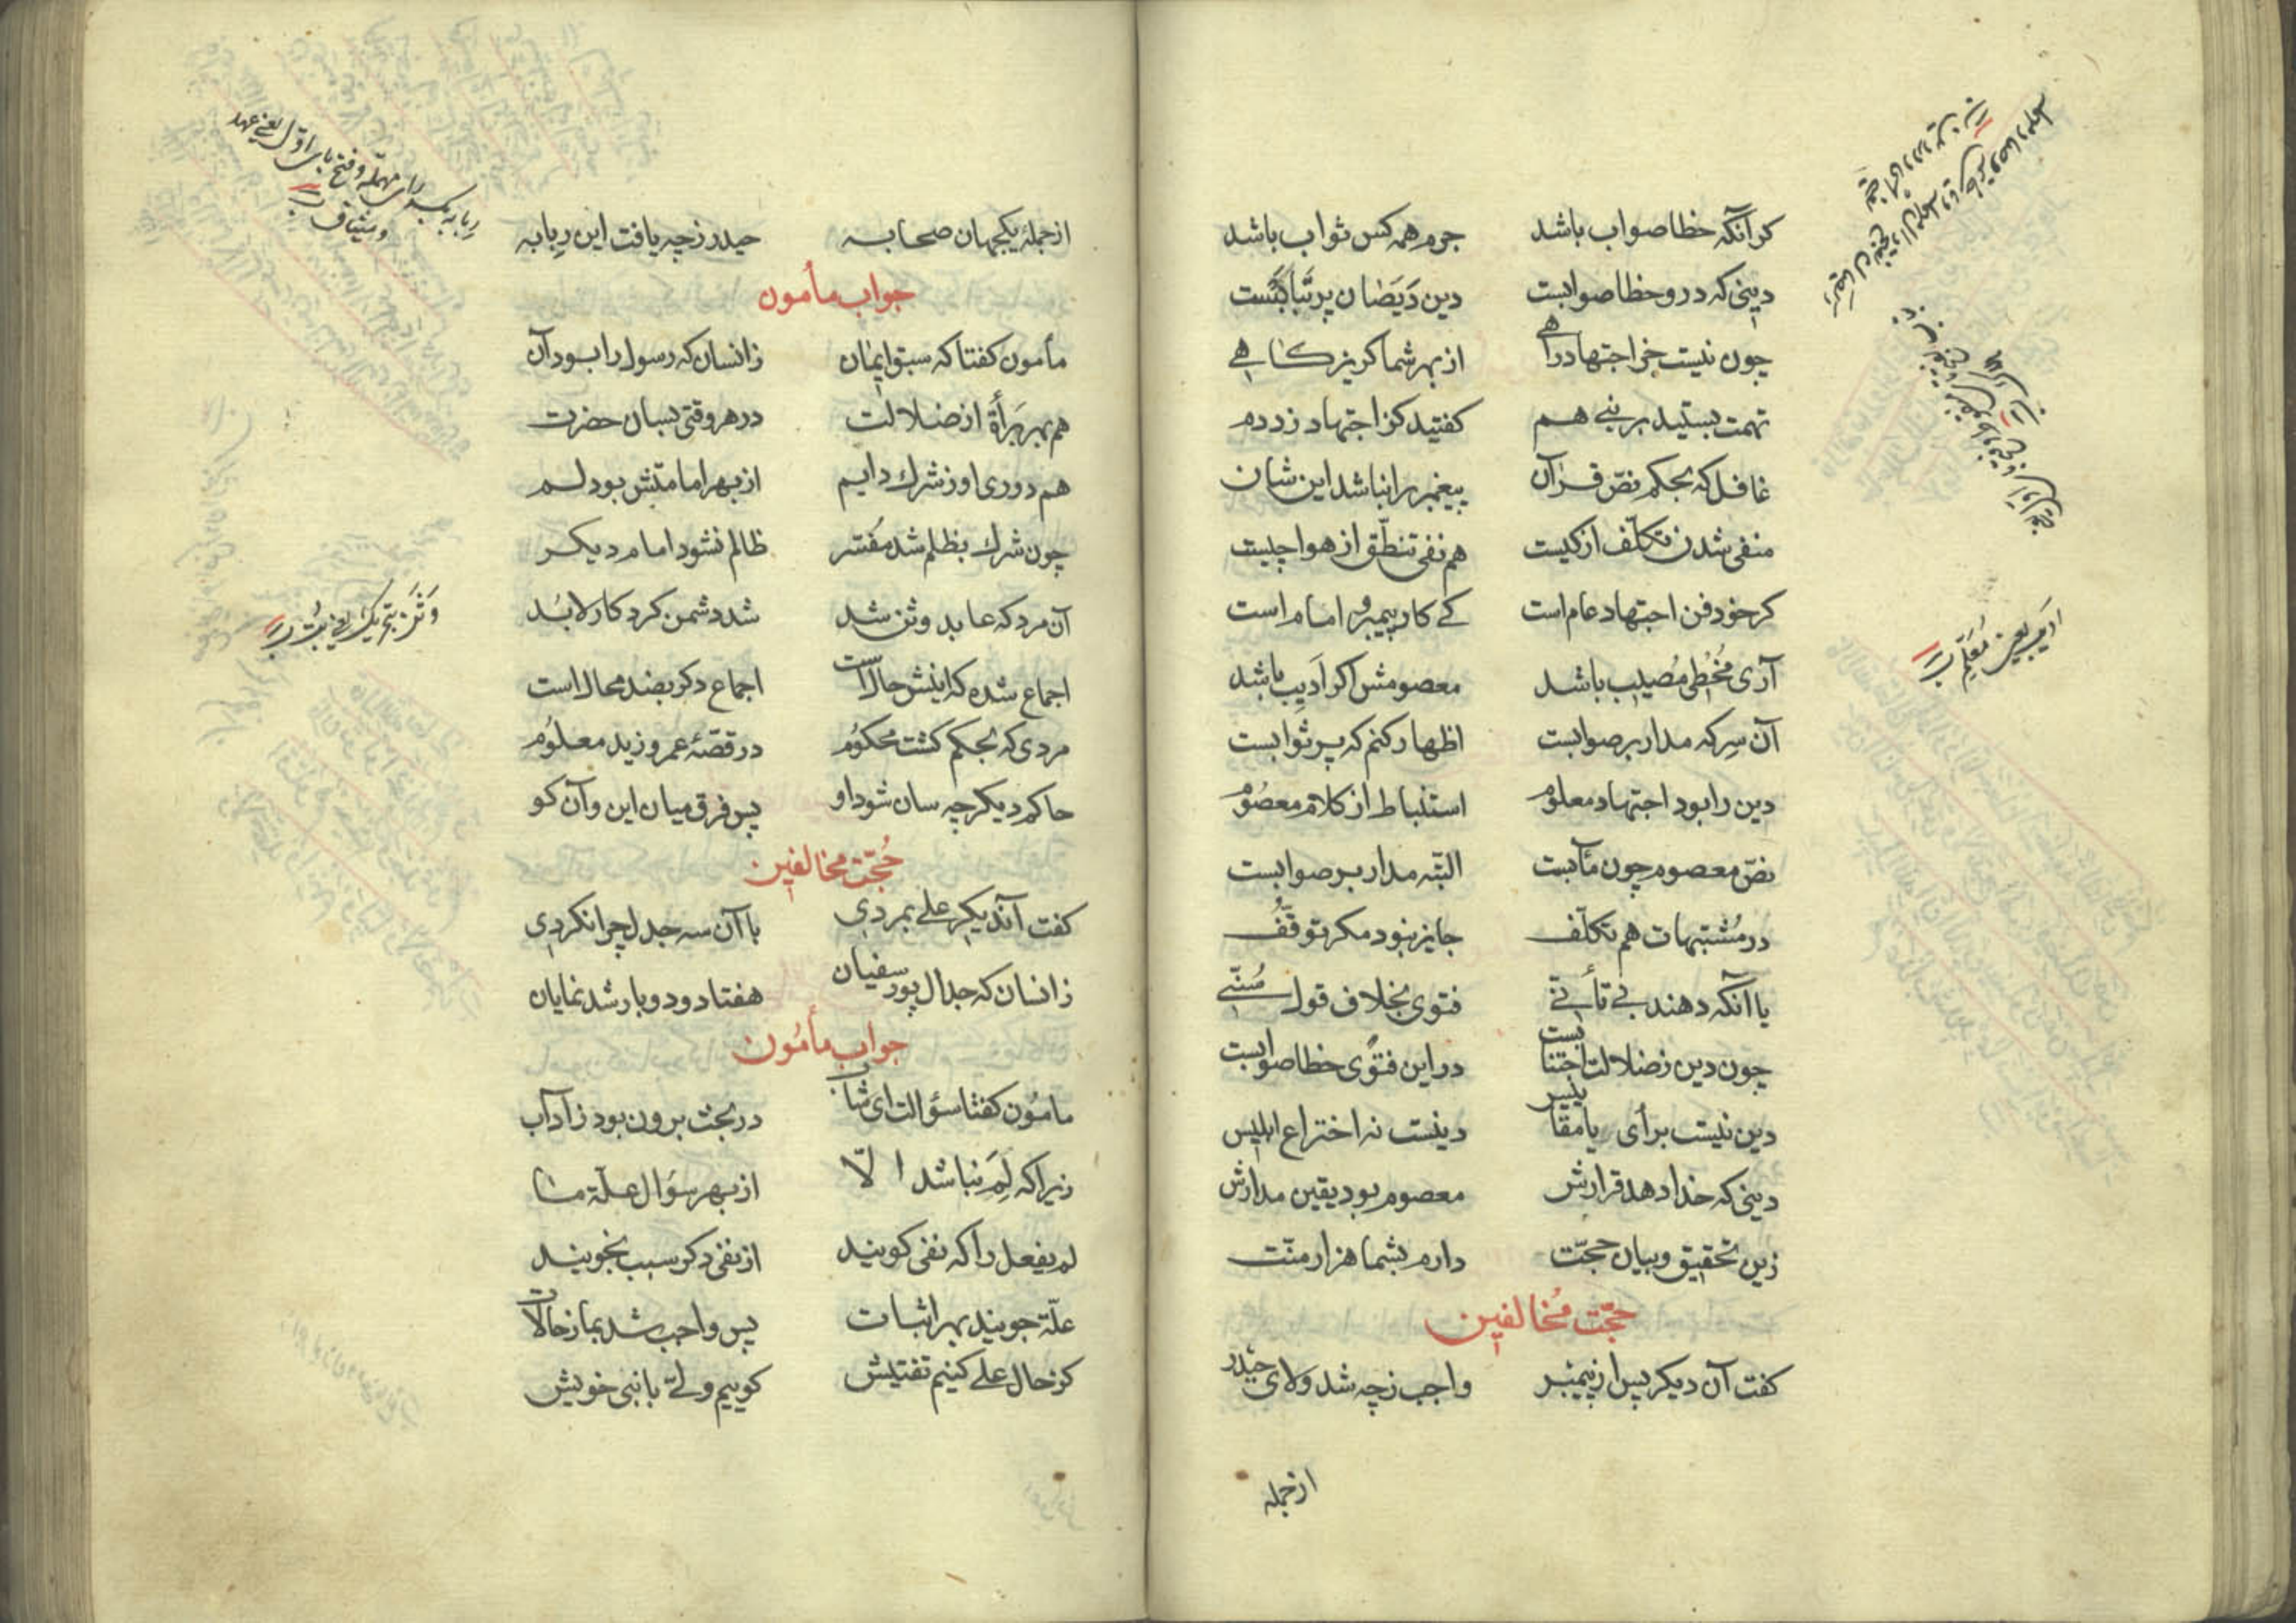 کر آنکه خطا صواب باشد جرم همه کس ثواب باشد
دینی که درو خطا صوابست دین دَیَصٰان پر تَبٰابَتست
چون نیست جز اجتهاد راهی از بهر شما کریزکاهی
تهمت بستید بر نبی هم کفتید کز اجتهاد زد دم
غافل که بحکم نصّ قرآن پیغمبر را نباشد این شان
منفی شدن تکلّف از کیست هم نفی تنطّق از هوا چیست
کر خود فن اجتهاد عام است کی کار پیمبر و امام است
آری مُخطی مُصیب باشد معصومش اکر اَدیب باشد
آن سِر که مدار بر صوابست اظهار کنم که پر ثوابست
دین را بود اجتهاد معلوُم استنباط از کلام معصوُم
نصّ معصوم چون مآبست البتّه مدار بر صوابست
در مُشتبهات هم تکلّف جایز نبود مکر توقّف
یا آنکه دهند بی تأنّی فتوی بخلاف قول سُنّی
چون دین ز ضلالت اجتنابست در این فتوی خطا صوابست
دین نیست برأی یا مقاییس دینست نه اختراع ابلیس
دینی که خدا دهد قرارش معصوم بود یقین مدارش
زین تحقیق و بیان حجّت دارم بشما هزار منّت
حجّت مُخالفین
کفت آن دیکر پس از پیمبر واجب ز چه شد ولای حیدر
از جمله
ادیب یعنی مُعَلّم
از جملهٔ یکجهان صحابه حیدر ز چه یافت این رِبابه
جواب مأمون
مأمون کفتا که سبق ایمٰان زانسان که رسول را بود آن
هم بهر بَرأة از ضلالت در هر وقتی بسان حضرت
هم دوری او ز شرك دایم از بهر امامتش بود لم
چون شرك بظلم شد مُفسّر ظالم نشود امام دیکر
آن مرد که عابد وثن شد شد دشمن کردکار لابُد
اجماع شده که اینش حالست اجماع دکر بضد محال است
مردی که بحکم کشت محکوُم در قصّهٔ عمرو زید معلوُم
حاکم دیکر چه سان شود او پس فرق میان این و آن کو
حُجّت مخالفین
کفت آندیکر علی بمردی با آن سه جدل چرا نکردی
زانسان که جدال پور سفیان هفتاد و دو بار شد نمایان
جواب مأمُون
مامُون کفتا سؤالت ای شاب در بحث برون بود ز آداب
زیرا که لِمَ نباشد الّا از بهر سؤال علّة منا
لم یفعل را که نفی کویند از نفی دکر سبب نجویند
علّة جویند بهر اثبات پس واجب شد بما ز حالات
کز حال علی کنیم تفتیش کوییم ولیّ یا نبی خویش
رِبابه بکسر رای مهمله و فتح بای اوّل یعنی عهد
و میثاق
وَثَن بتحریك یعنی بُت